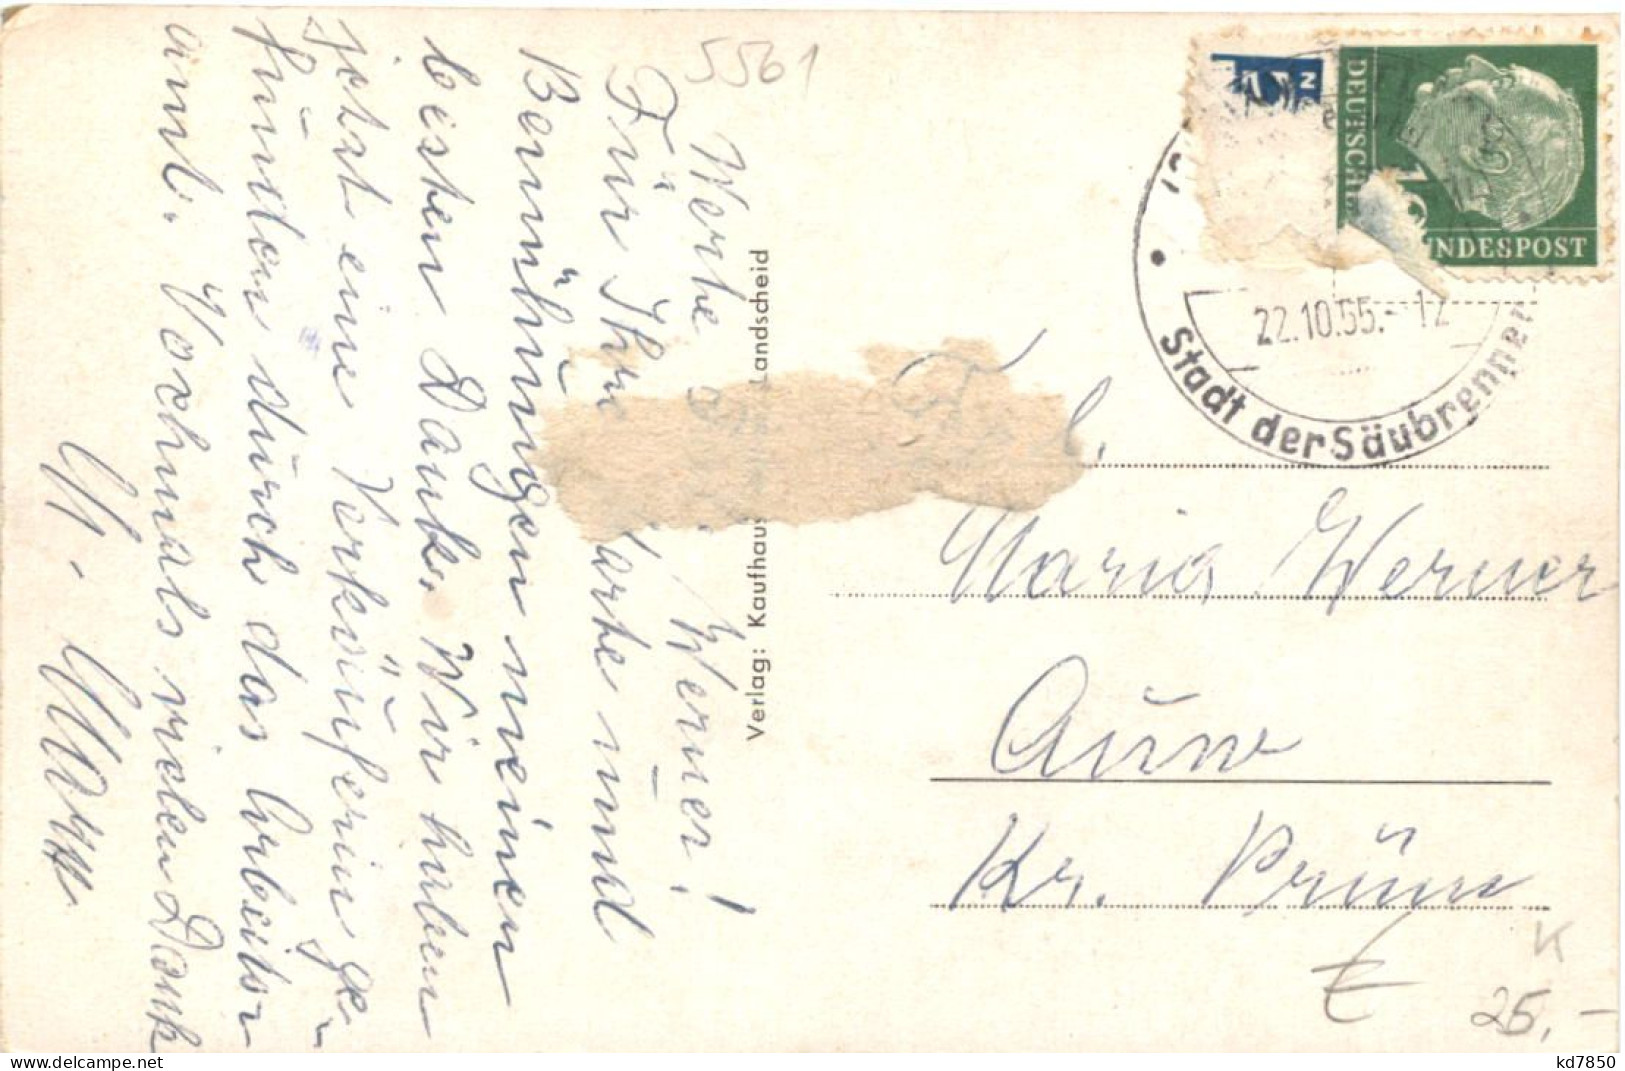 5561
Werte Frl. Werner!
Für Ihre Karte und
Bemühungen meinen
besten Dank. Wir haben
jetzt eine Verkäuferin ge-
funden durch das Arbeits-
amt. Nochmals vielen Dank
Verlag: Kaufhaus Landscheid
DEUTSCHE
BUNDESPOST
10
22.10.55.-12
Stadt der Säubrenner
Frl.
Maria Werner
Auw
Kr. Prüm
K
25,-
kd7850